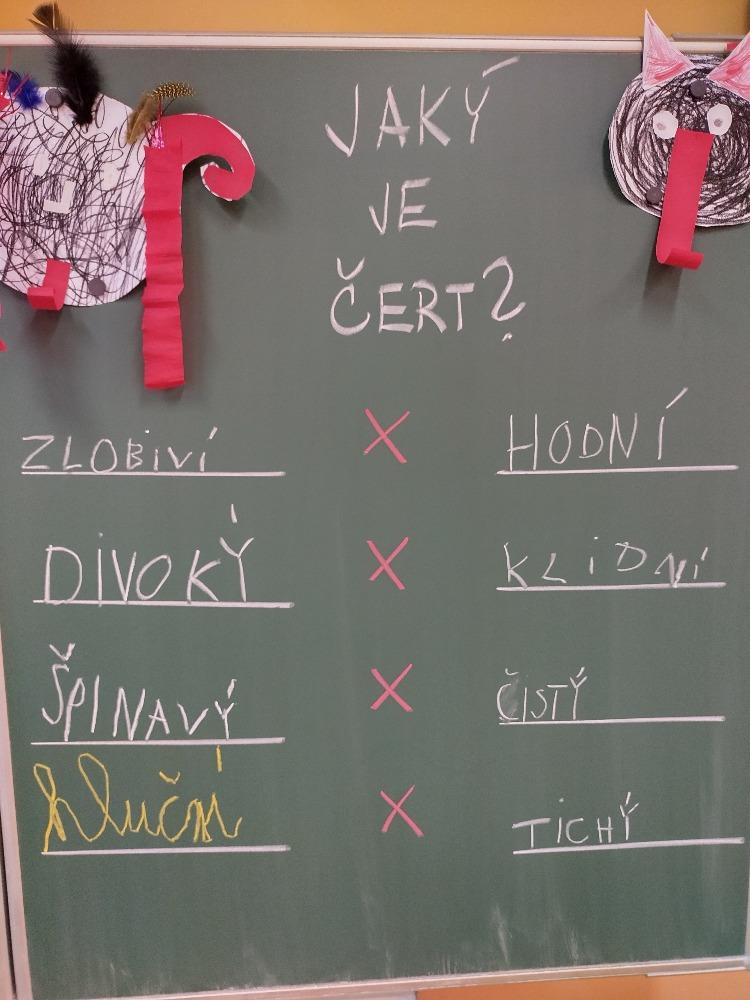 JAKÝ
JE
ČERT?
ZLOBIVÍ X HODNÍ
DIVOKÝ X KLIDNÍ
ŠPINAVÝ X ČISTÝ
hluční X TICHÝ